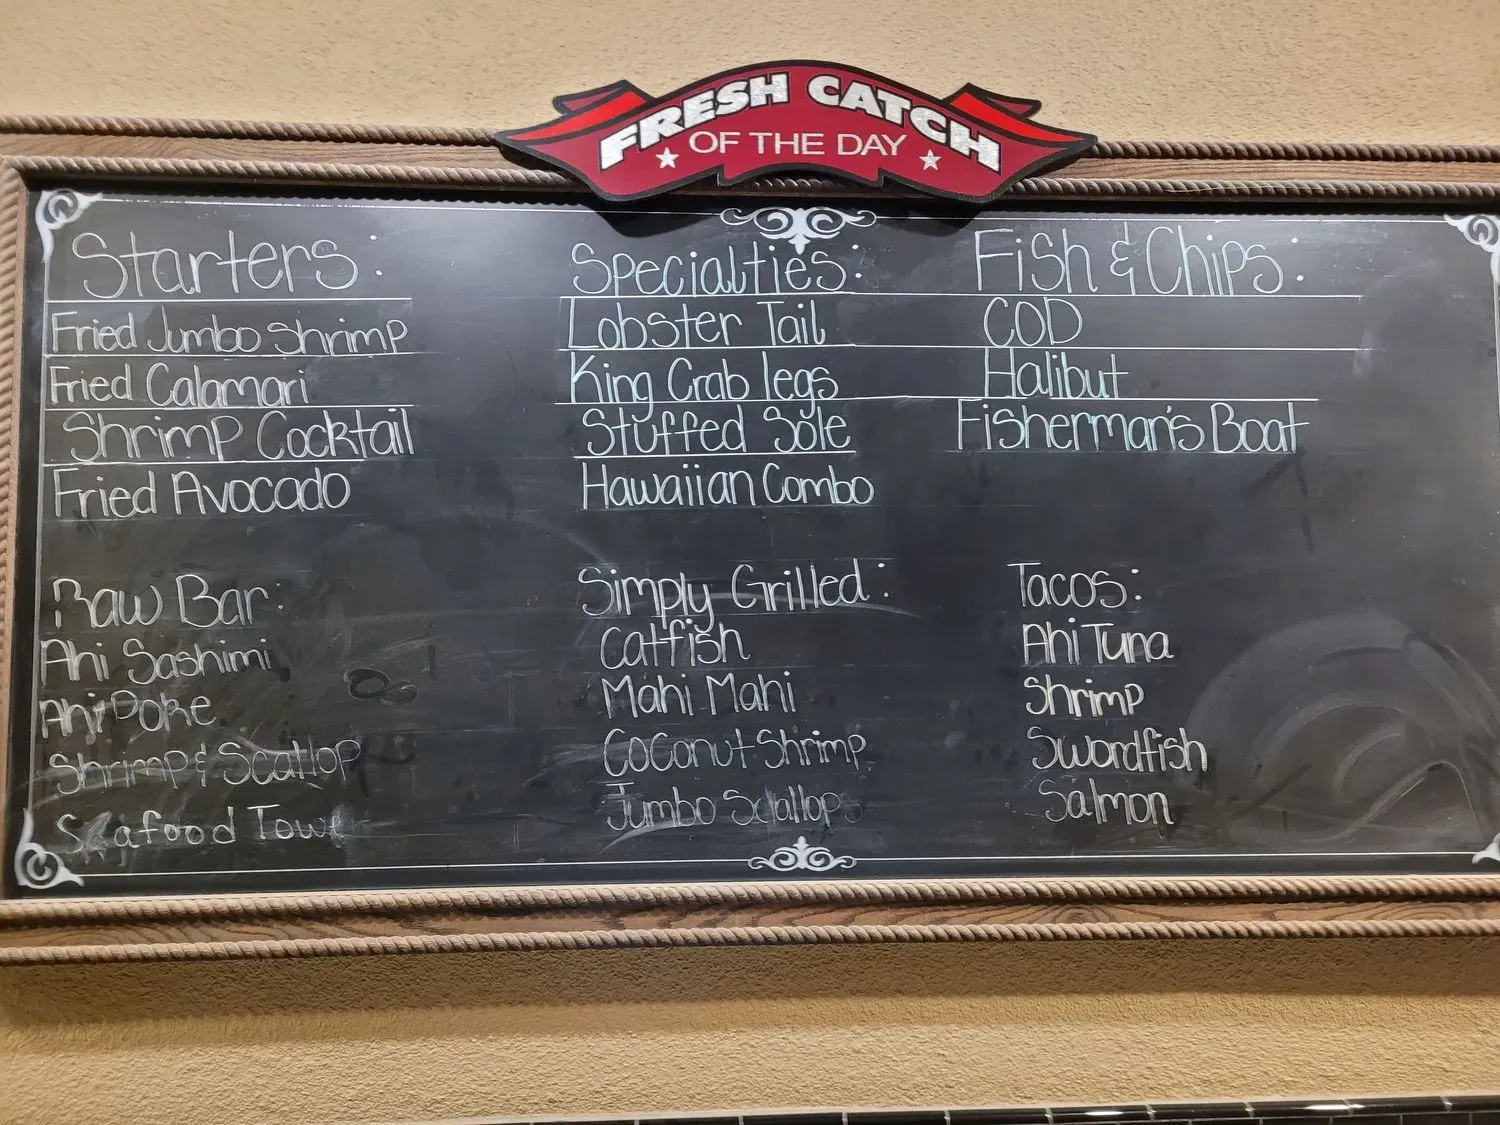 FRESH CATCH
OF THE DAY
Starters:
Fried Jumbo Shrimp
Fried Calamari
Shrimp Cocktail
Fried Avocado
Specialties:
Lobster Tail
King Crab legs
Stuffed Sole
Hawaiian Combo
Fish & Chips:
COD
Halibut
Fisherman's Boat
Raw Bar:
Ahi Sashimi
Ahi Poke
Shrimp & Scallop
Seafood
Simply Grilled:
Catfish
Mahi Mahi
Coconut Shrimp
Jumbo Scallops
Tacos:
Ahi Tuna
Shrimp
Swordfish
Salmon